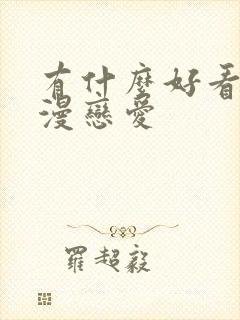 有什麼好看
漫戀愛
羅超毅